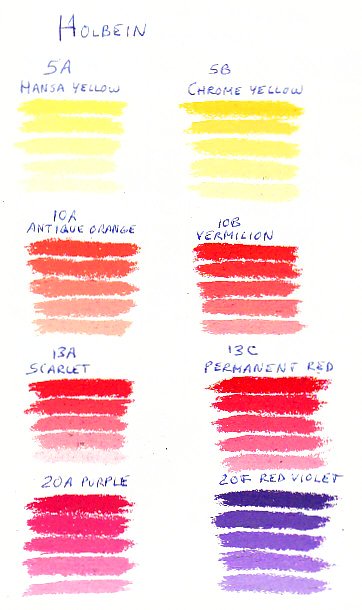 HOLBEIN
5A
HANSA YELLOW
5B
CHROME YELLOW
10A
ANTIQUE ORANGE
10B
VERMILION
13A
SCARLET
13C
PERMANENT RED
20A PURPLE
20F RED VIOLET